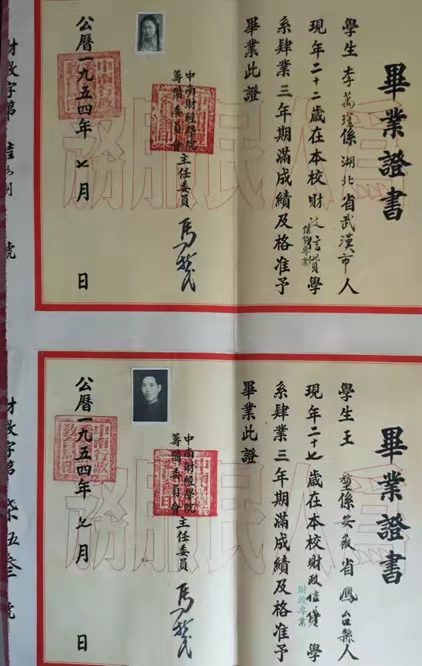 畢業證書
學生李萬瑾係湖北省武漢市人
現年二十二歲在本校財政信貸學
信貸專業
系肆業三年期滿成績及格准予
畢業此證
中南財經學院
籌備委員會
主任委員
公曆一九五四年七月 日
財教字第 號
為人民服務
畢業證書
學生王 係安徽省鳳台縣人
現年二十七歲在本校財政信貸學
財政專業
系肆業三年期滿成績及格准予
畢業此證
中南財經學院
籌備委員會
主任委員
公曆一九五四年七月 日
財教字第柒伍叁號
為人民服務